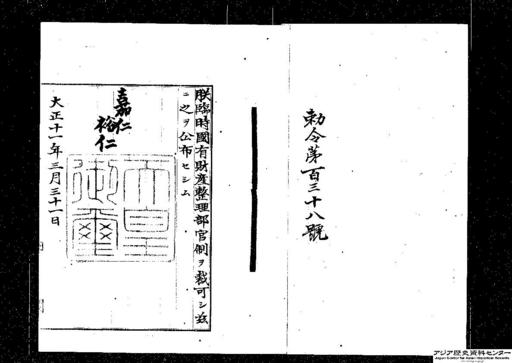 勅令第百三十八號
朕臨時國有財産整理部官制ヲ裁可シ玆
ニ之ヲ公布セシム
嘉仁
裕仁
大正十一年三月三十一日
天皇
御璽
アジア歴史資料センター
Japan Center for Asian Historical Records